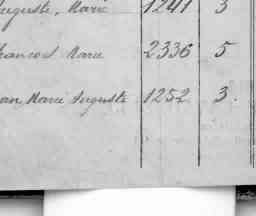 Auguste, Marie 1241 3
François Marie 2336 5
Jean Marie Auguste 1252 3.